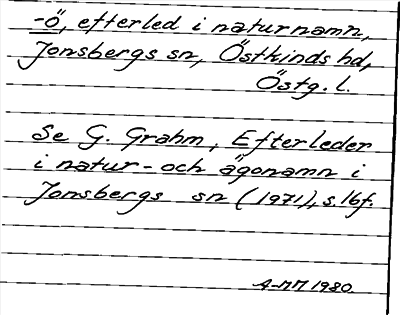 -ö, efterled i naturnamn,
Jonsbergs sn, Östkinds hd,
Östg. l.
Se G. Grahm, Efterleder
i natur- och ägonamn i
Jonsbergs sn (1971), s. 16f.
1980.